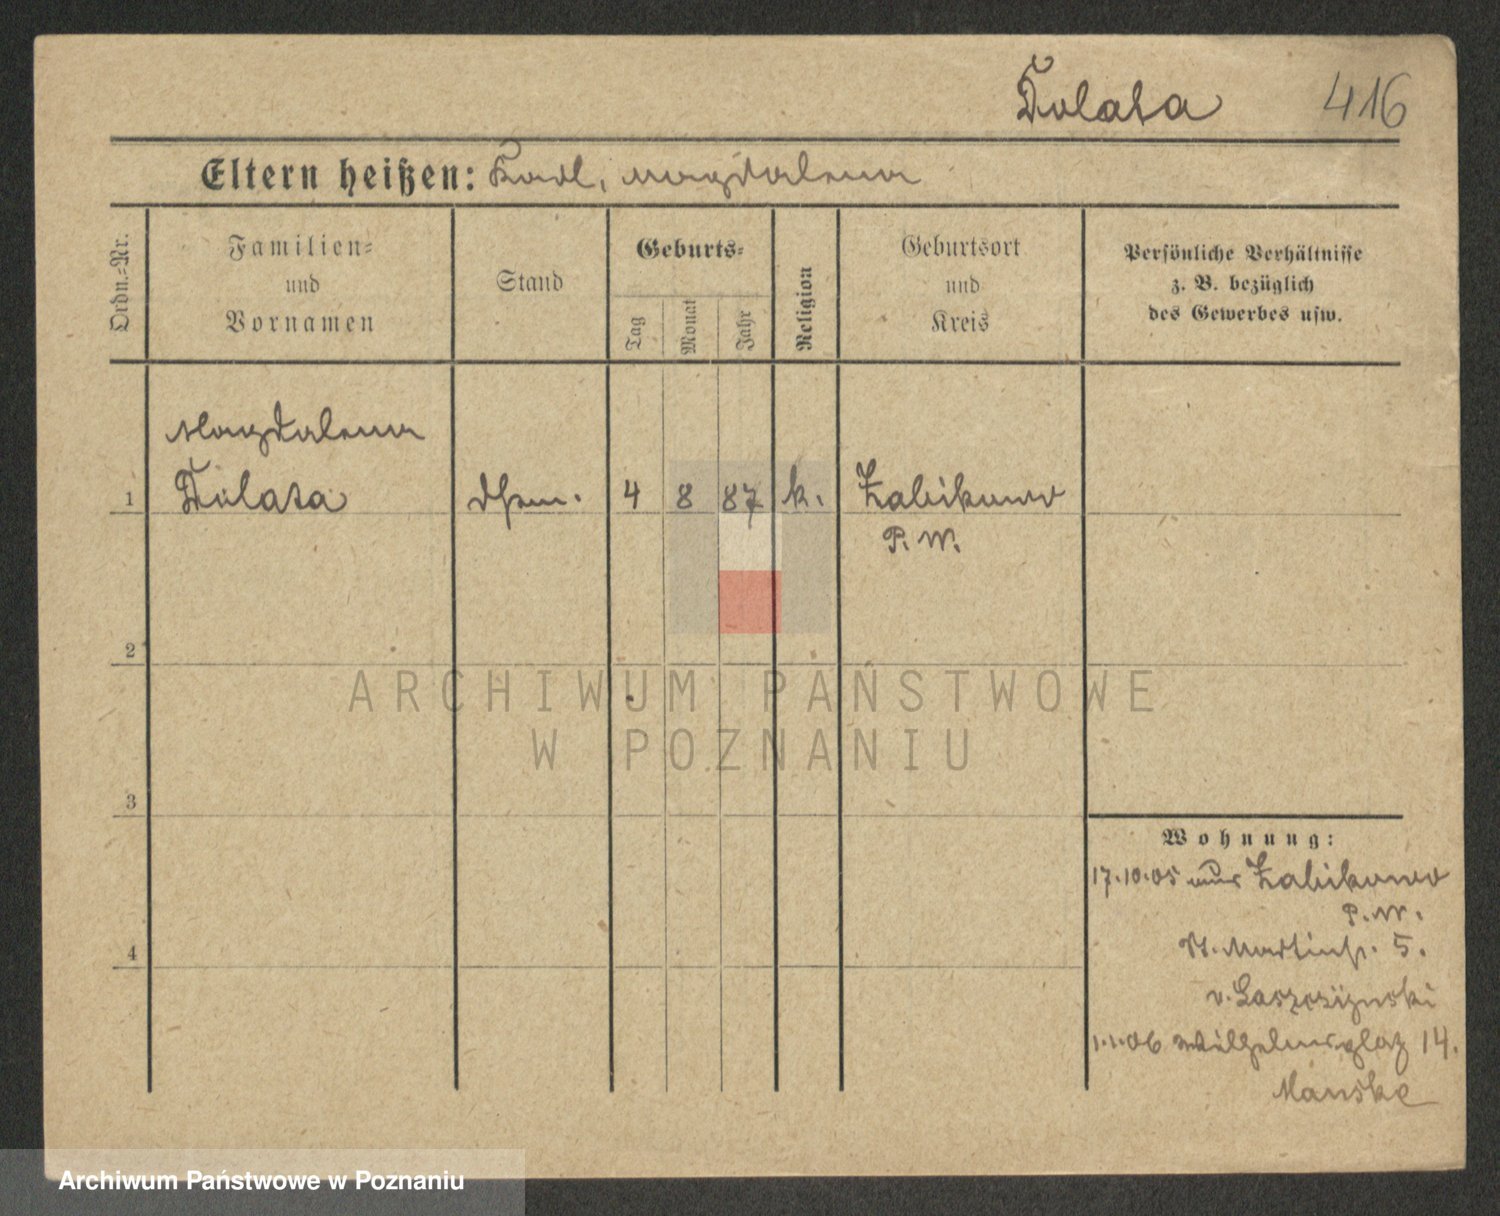 Dolata 416
Eltern heißen: Karl, Magdalena
Ordn.-Nr.
Familien-
und
Vornamen
Stand
Geburts-
Tag
Monat
Jahr
Religion
Geburtsort
und
Kreis
Persönliche Verhältnisse
z. B. bezüglich
des Gewerbes usw.
Magdalena
1 Dolata 4 8 87 k. Zabikowo
P. W.
2
ARCHIWUM PAŃSTWOWE
W POZNANIU
3
Wohnung:
17.10.05 Zabikowo
P. W.
St. Martinstr. 5.
v. Laszczynski
1.1.06 Wilhelmsplatz 14.
4
Manske
Archiwum Państwowe w Poznaniu